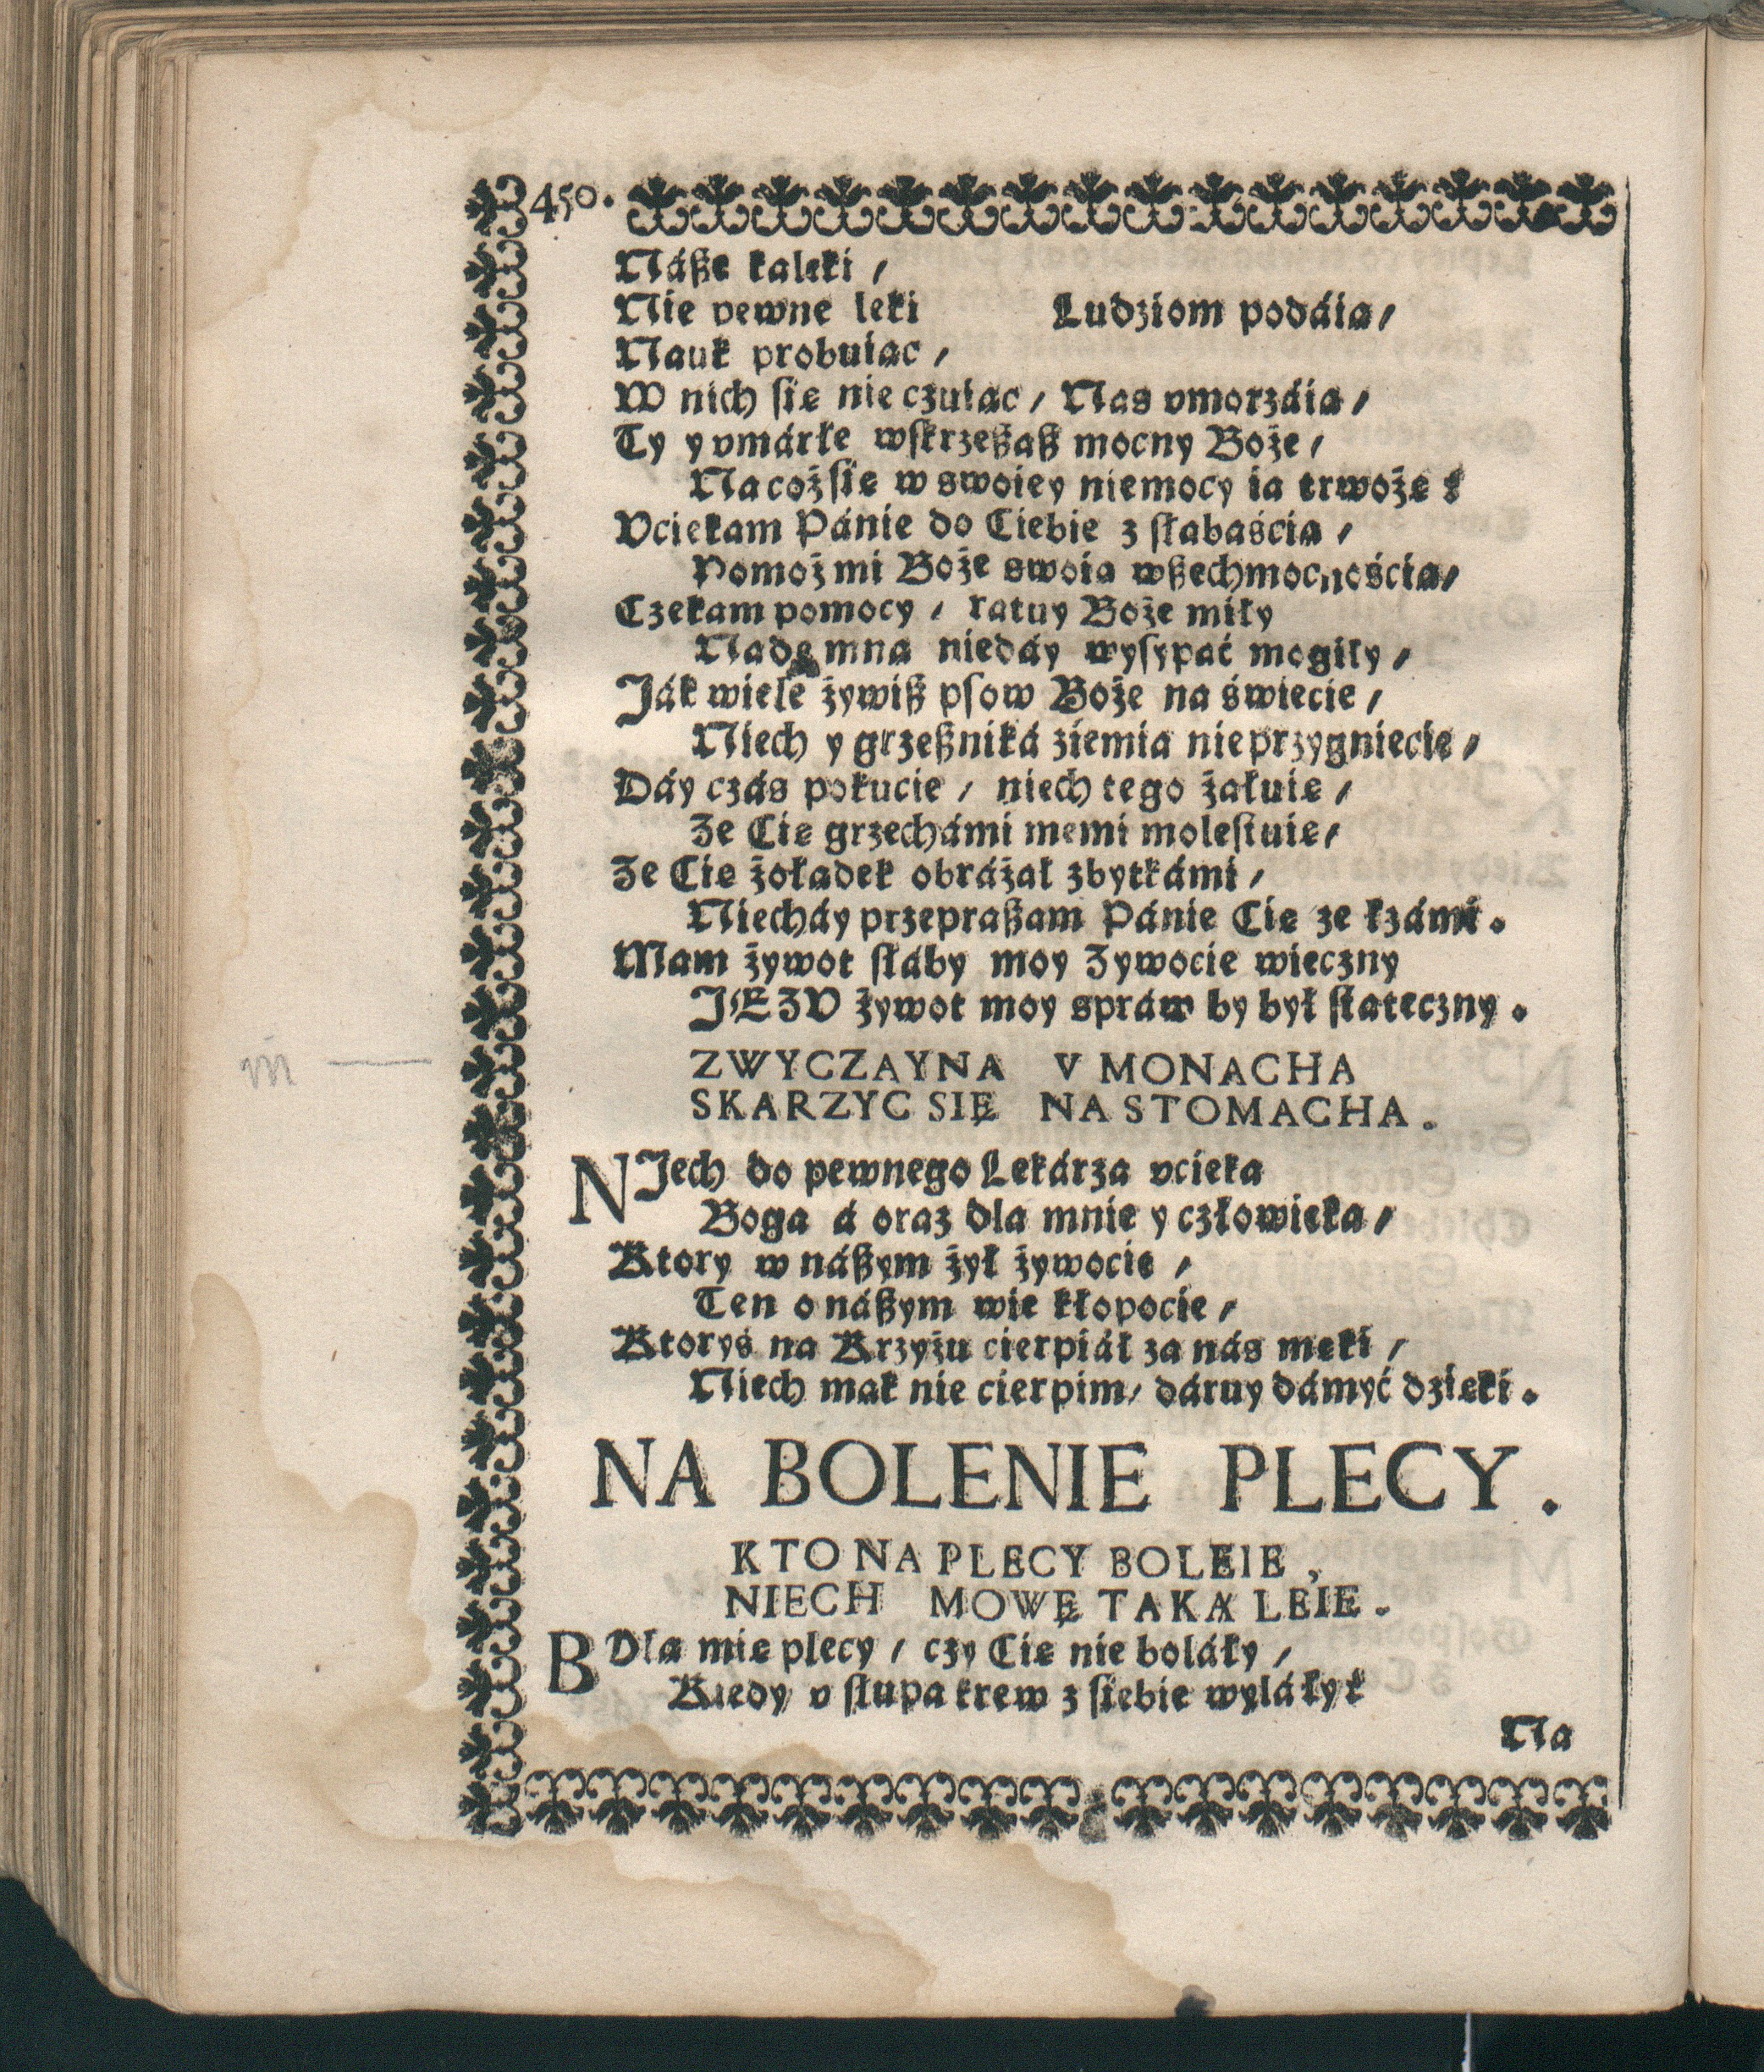 450.
Náße kaleki /
Nie pewne leki Ludziom podáią /
Nauk probuiąc /
W nich się nie czuiąc / Nas vmorzáią /
Ty y vmárłe wskrzeßaß mocny Boże /
Na coż się w swoiey niemocy ia trwożę?
Vciekam Pánie do Ciebie z słabaścią /
Pomoż mi Boże swoią wßechmocnością /
Czekam pomocy / ratuy Boże miły
Nade mną niedáy wysypać mogiły /
Ják wiele żywiß psow Boże na świecie /
Niech y grzeßniká ziemia nieprzygniecie /
Dáy czás pokucie / niech tego żałuię /
Ze Cię grzechámi memi molestuię /
Ze Cię żołądek obráżał zbytkámi /
Niecháy przepraßam Pánie Cię ze łzámi.
Mam żywot słáby moy Zywocie wieczny
JEZU żywot moy spráw by był stateczny.
ZWYCZAYNA V MONACHA
SKARZYC SIĘ NA STOMACHA.
NJech do pewnego Lekárza vcieka
Boga á oraz dla mnie y człowieka /
Ktory w náßym żył żywocie /
Ten o náßym wie kłopocie /
Ktoryś na Krzyżu cierpiáł za nás męki /
Niech mąk nie cierpim / dáruy dámyć dzięki.
NA BOLENIE PLECY.
KTO NA PLECY BOLEIE,
NIECH MOWĘ TAKĄ LEIE.
BDla mię plecy / czy Cię nie boláły /
Kiedy v słupa krew z siebie wyláły?
Na